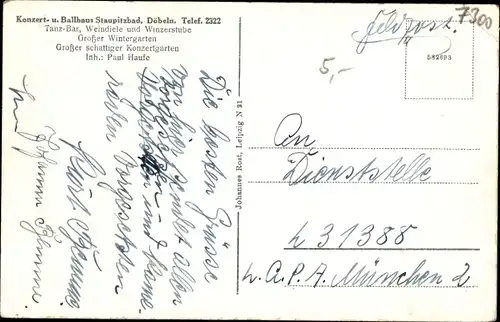 Konzert- u. Ballhaus Staupitzbad, Döbeln. Telef. 2322
Tanz-Bar, Weindiele und Winzerstube
Großer Wintergarten
Großer schattiger Konzertgarten
Inh.: Paul Haufe
Feldpost.
7300
5,-
582693
Die besten Grüsse
von hier sendet allen
und
Vorgesetzten
Kurt
Johannes Rost, Leipzig N 21
An
Dienststelle
L 31388
L.G.P.A. München 2